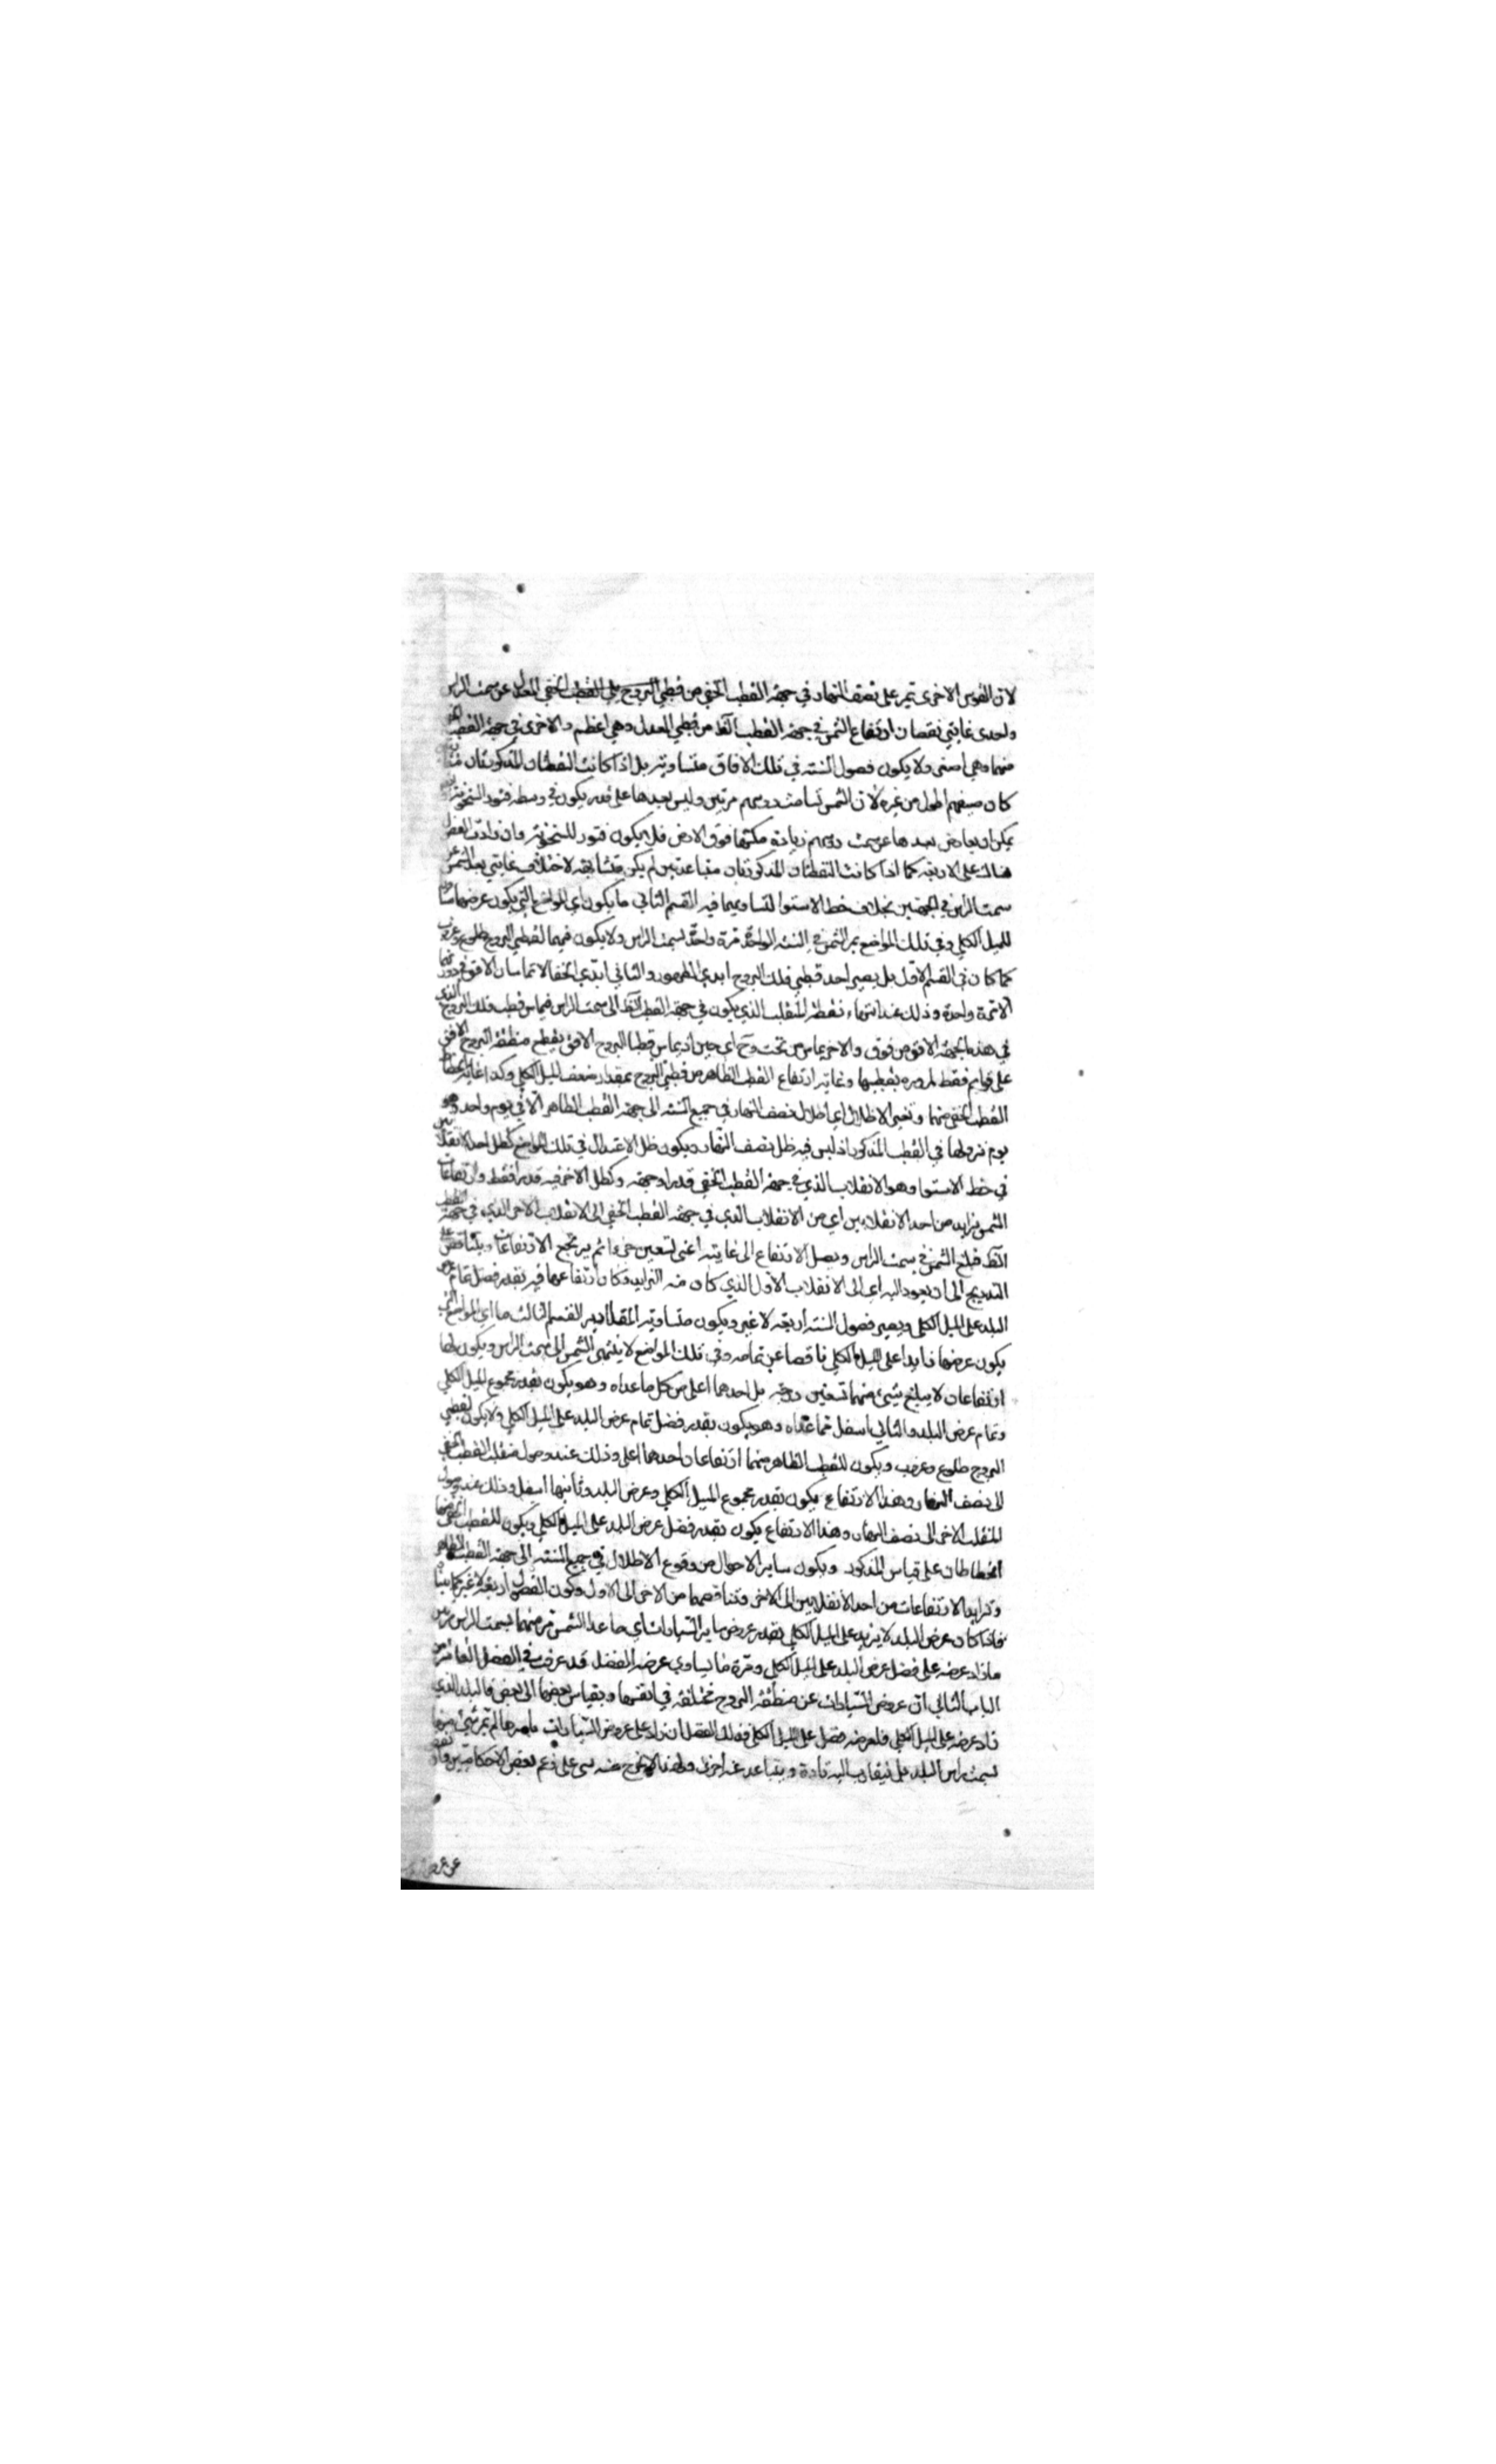 لان القوس الاخرى تمر على نصف النهار في جهة القطب الخفي من قطبي البروج على القطب الخفي المعدل عن سمت الراس
واحدى غايتي نقصان ارتفاع الشمس في جهة القطب الظ من قطبي المعدل وهي اعظم والاخرى في جهة القطب
منهما وهي اصغر ولا يكون فصول السنة في تلك الافاق متساوية بل اذا كانت النقطتان المذكورتان
كان صيفهم اطول من غيره لان الشمس تسامت رؤسهم مرتين وليس بعدها على قدر يكون في وسطه فتور السخونة
يمكن ان يعارض بعدها عن سمت رؤسهم زيادة مكثها فوق الارض فلا يكون فتور للسخونة وان زادت الفصول
هناك على الاربعة كما اذا كانت النقطتان المذكورتان متباعدتين لم يكن متشابهة لاختلاف غايتي بعد الشمس عن
سمت الراس في الجهتين بخلاف خط الاستوا لتساويهما فيه القسم الثاني ما يكون اي المواضع التي يكون عرضها
للميل الكلي وفي تلك المواضع يمر الشمس في السنة الواحدة مرة واحدة بسمت الراس ولا يكون فيها لقطبي البروج طلوع وغروب
كما كان في القسم الاول بل يصير احد قطبي فلك البروج ابدي الظهور والثاني ابدي الخفا لا تماسان الافق في
الا مرة واحدة وذلك عند انتهاء نقطة المنقلب الذي يكون في جهة القطب الظ الى سمت الراس فيماس قطب فلك البروج الذي
في هذه الجهة الافق من فوق والاخر يماس من تحت وح اي حين اذ يماس قطبا البروج الافق يقطع منطقة البروج الافق
على قوايم فقط لمروره بقطبيها وغاية ارتفاع القطب الظاهر من قطبي البروج بمقدار ضعف الميل الكلي وكذا غاية انحطاط
القطب الخفي منهما وتصير الاظلال اي اظلال نصف النهار في جميع السنة الى جهة القطب الظاهر الا في يوم واحد وهو
يوم نزولها في القطب المذكور اذ ليس فيه ظل نصف النهار ويكون ظل الاعتدال في تلك المواضع كظل احد الانقلابين
في خط الاستوا وهو الانقلاب الذي في جهة القطب الخفي قدرا وجهة وكظل الاخر فيه قدرا فقط وارتفاعات
الشمس تزايد من احد الانقلابين اي من الانقلاب الذي في جهة القطب الخفي الى الانقلاب الاخر الذي في جهة القطب
الظ فبلغ الشمس في سمت الراس ويصل الارتفاع الى غايته اعني تسعين جزءا ثم يرجع الارتفاعات ويتناقص على
التدريج الى ان يعود اليه اي الى الانقلاب الاول الذي كان منه التزايد وكان ارتفاعها فيه بقدر فضل تمام عرض
البلد على الميل الكلي ويصير فصول السنة اربعة لا غير ويكون متساوية المقادير القسم الثالث ما اي المواضع التي
يكون عرضها زايدا على الميل الكلي ناقصا عن تمامه وفي تلك المواضع لا ينتهي الشمس الى سمت الراس ويكون لها
ارتفاعان لا يبلغ شيئ منهما تسعين درجة بل احدهما اعلى من كل ما عداه وهو يكون بقدر مجموع الميل الكلي
وتمام عرض البلد والثاني اسفل مما عداه وهو يكون بقدر فضل تمام عرض البلد على الميل الكلي ولا يكون لقطبي
البروج طلوع وغروب ويكون للقطب الظاهر منهما ارتفاعان احدهما اعلى وذلك عند وصول منقلب القطب الخفي
الى نصف النهار وهذا الارتفاع يكون بقدر مجموع الميل الكلي وعرض البلد وثانيهما اسفل وذلك عند وصول
المنقلب الاخر الى نصف النهار وهذا الارتفاع يكون بقدر فضل عرض البلد على الميل الكلي ويكون للقطب الخفي منهما
انحطاطان على قياس المذكور ويكون ساير الاحوال من وقوع الاظلال في جميع السنة الى جهة القطب الظاهر
وتزايد الارتفاعات من احد الانقلابين الى الاخر وتناقصها من الاخر الى الاول وكون الفصول اربعة لا غير كما بينا
فاذا كان عرض البلد لا يزيد على الميل الكلي بقدر عروض ساير السيارات اي ما عدا الشمس تمر منهما بسمت الراس مرتين
ما زاد عرضه على فضل عرض البلد على الميل الكلي ومرة ما يساوي عرضه الفضل قد عرفت في الفصل العاشر من
الباب الثاني ان عروض السيارات عن منطقة البروج مختلفة في انفسها وبقياس بعضها الى بعض فالبلد الذي
زاد عرضه على الميل الكلي فلعرضه فضل على الميل الكلي فذلك الفضل ان زاد على عروض السيارات باسرها لم تمر شيئ منها
بسمت راس البلد بل يتقارب اليه تارة ويتباعد عنه اخرى